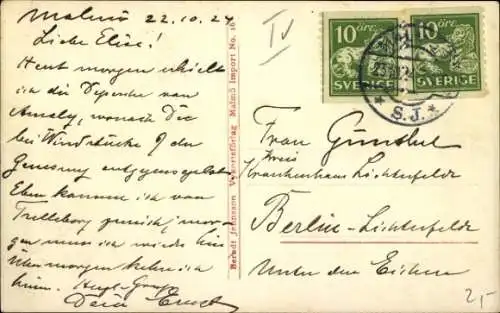 Malmö 22.10.24
Liebe Elise!
Heut morgen erhielt
ich die Depesche von
Amely, wonach Du
bei Windstärke 9 der
Genesung
Eben komme ich von
Trelleborg zurück, mor-
gen muss ich wieder hin
Übermorgen kehre ich
heim. Herzl. Gruss
Dein Ernst
Berndt Johnsson Vykortsförlag Malmö Import No. 16
IV
10 ÖRE
SVERIGE
10 ÖRE
SVERIGE
★ S.J. ★
Frau Günthel
Kreis
Krankenhaus Lichterfelde
Berlin-Lichterfelde
Unter den Eichen
25-